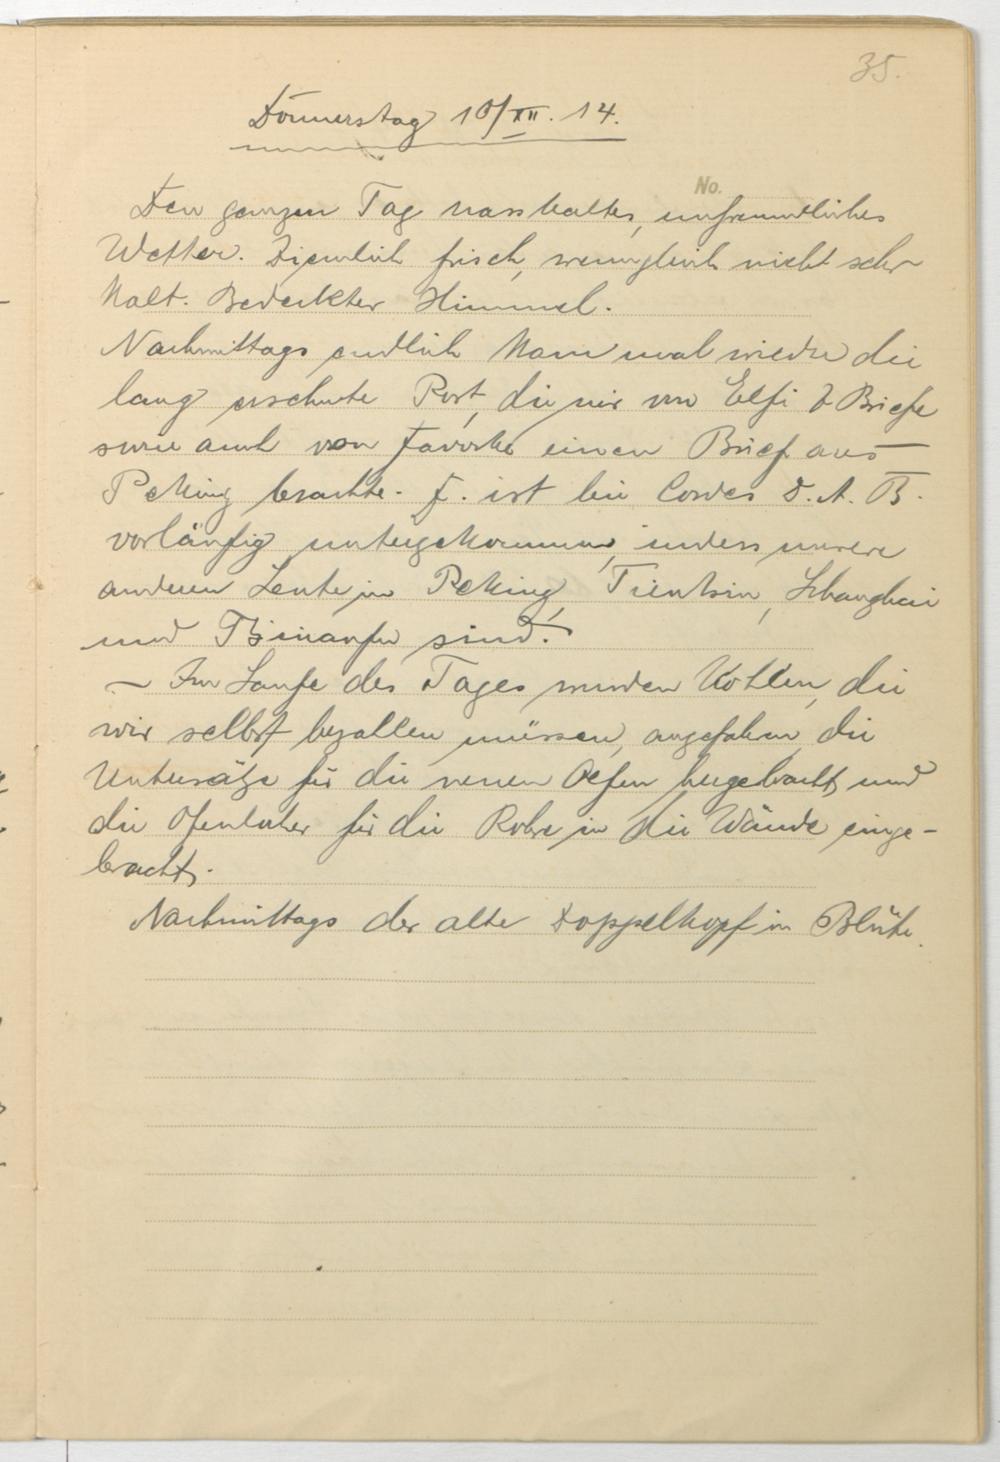 35.
Donnerstag 10/XII. 14.
No.
Den ganzen Tag nasskaltes, unfreundliches
Wetter. Ziemlich frisch, wenngleich nicht sehr
kalt. Bedeckter Himmel.
Nachmittags endlich kam mal wieder die
lang ersehnte Post, die mir von Elfi 2 Briefe
sowie auch von einen Brief aus
Peking brachte. F. ist bei Cordes D. A. B.
vorläufig untergekommen, indess unsere
anderen Leute in Peking, Tientsin, Shanghai
und Tsinanfu sind.
— Im Laufe des Tages wurden Kohlen, die
wir selbst bezahlen müssen, angefahren, die
Untersätze für die neuen Oefen hergebracht und
die Ofenlöcher für die Rohre in die Wände einge-
bracht.
Nachmittags der alte Doppelkopf in Blüte.